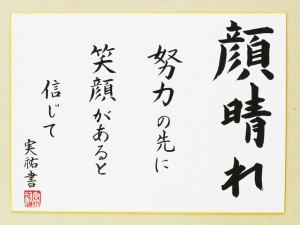 顔晴れ
努力の先に
笑顔があると
信じて
実祐書